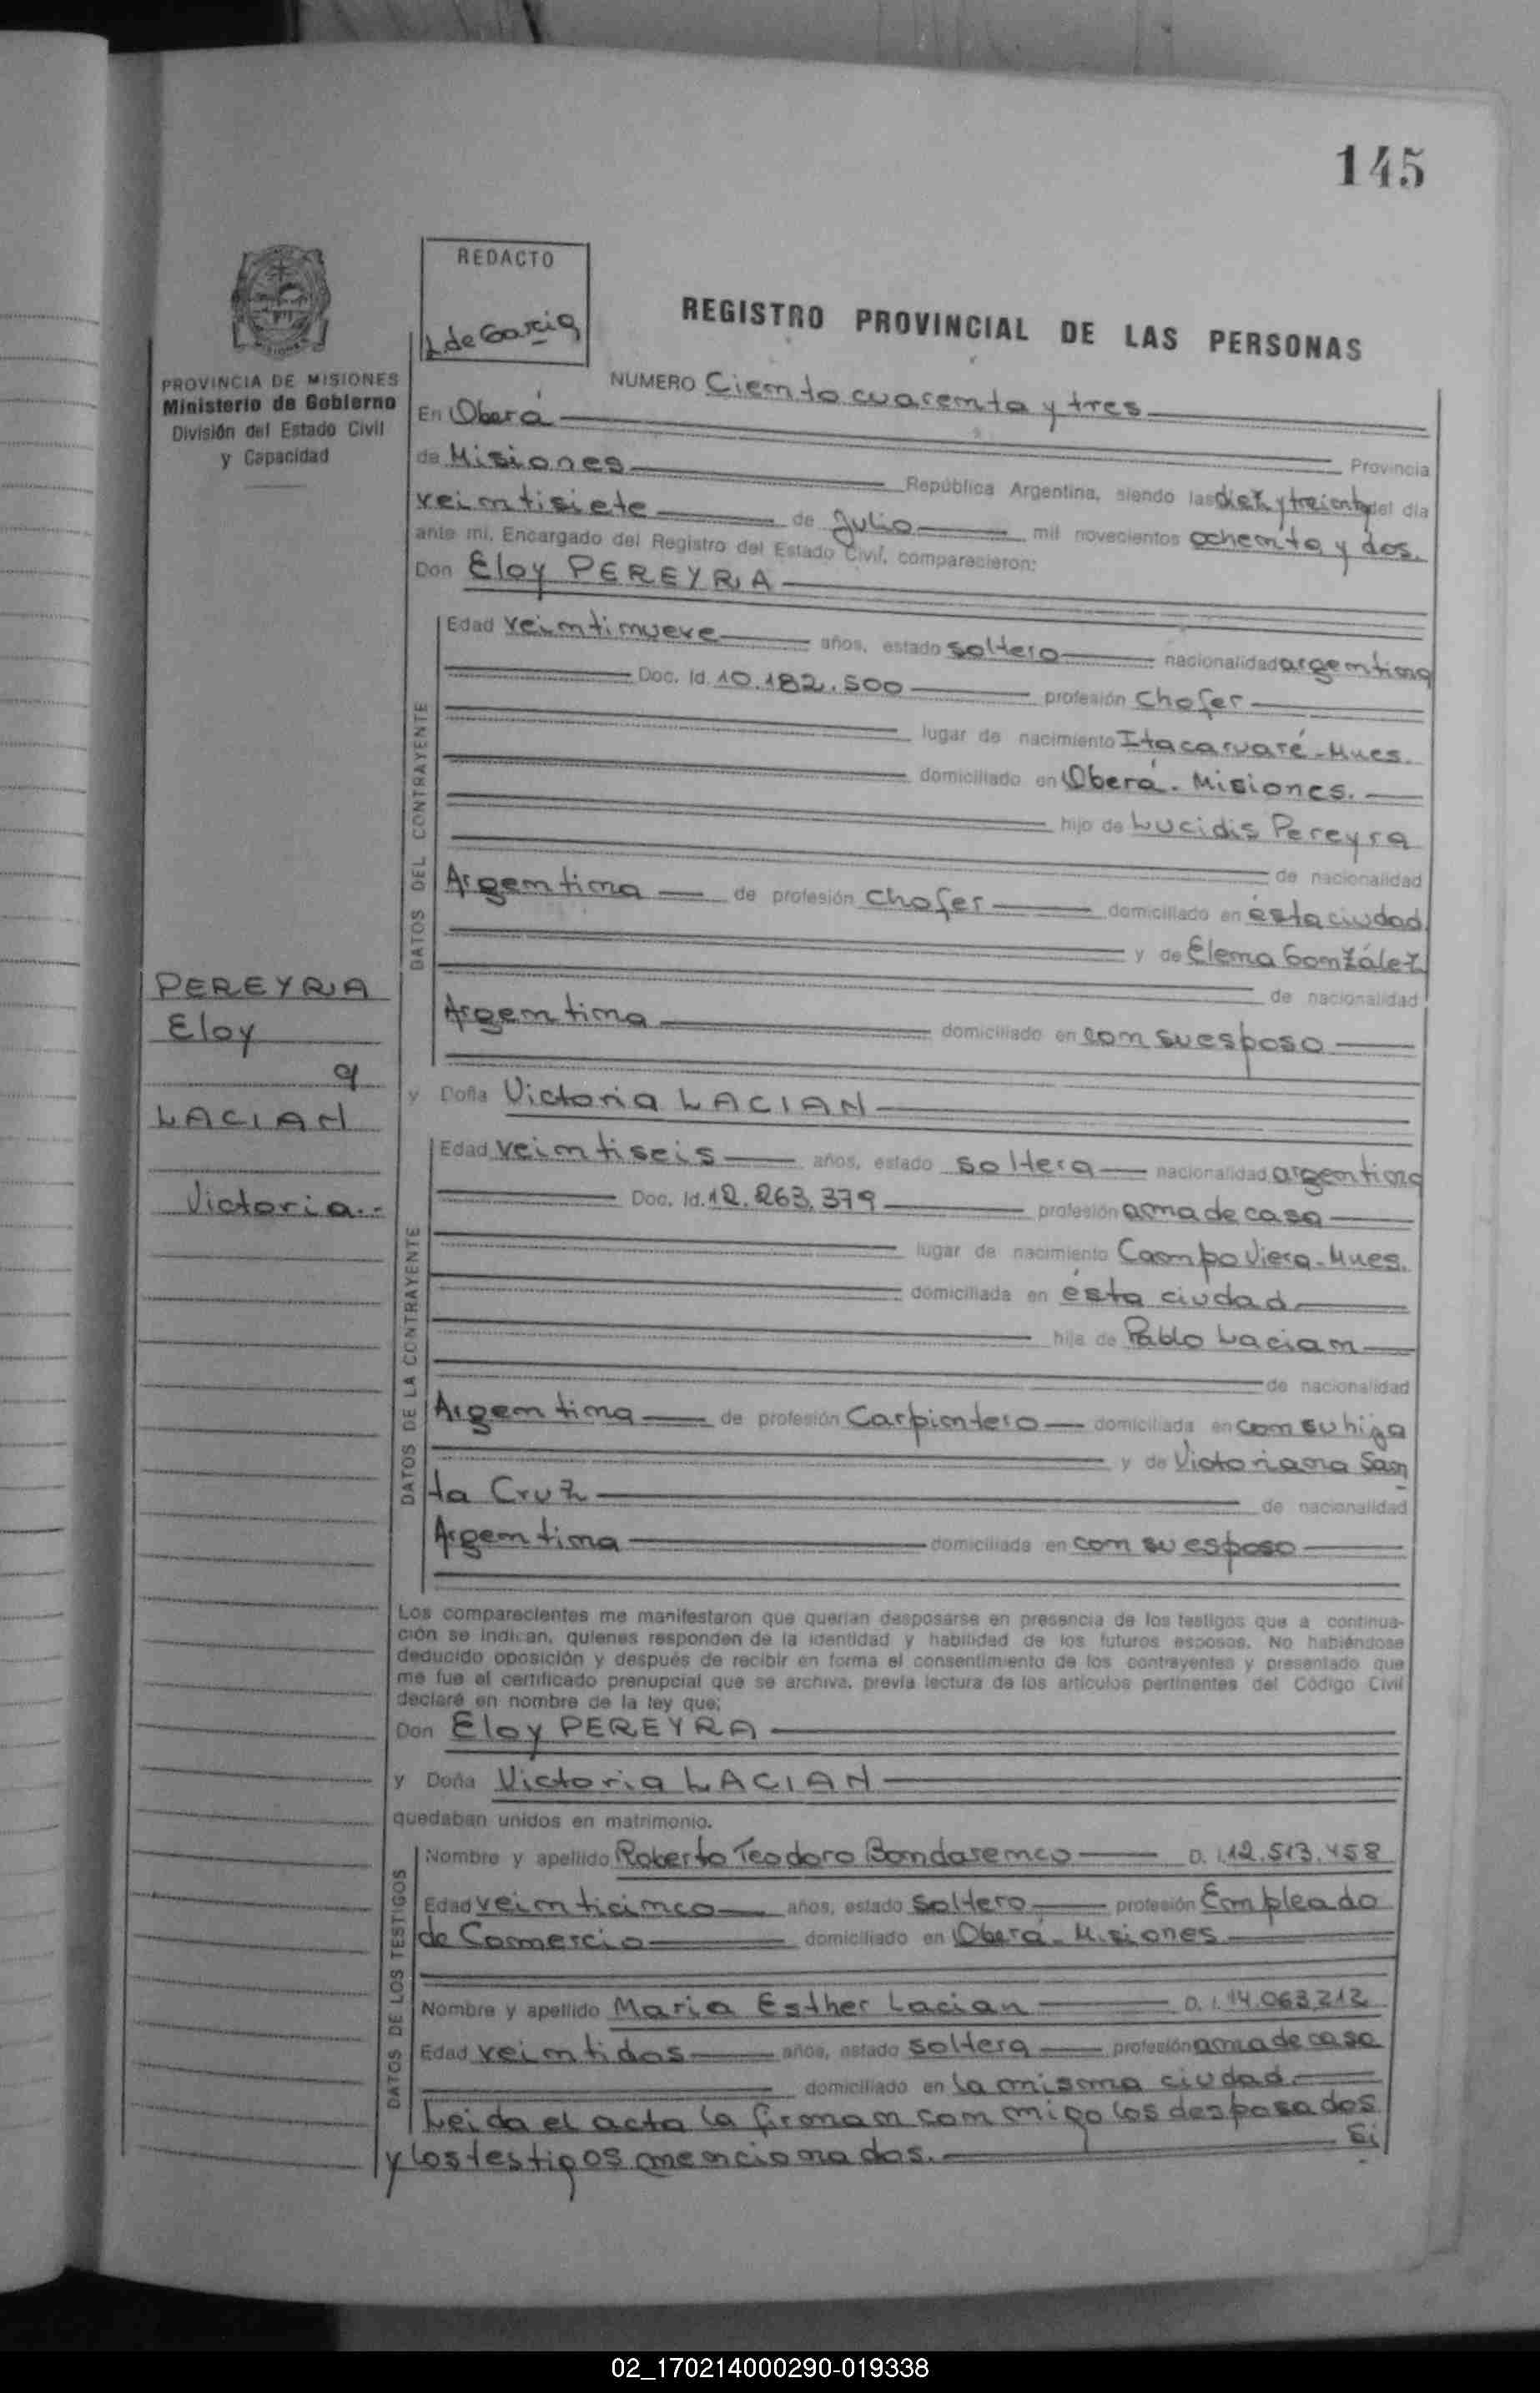 145
REDACTO
L de Garcia
REGISTRO PROVINCIAL DE LAS PERSONAS
PROVINCIA DE MISIONES
Ministerio de Gobierno
División del Estado Civil
y Capacidad
NUMERO Ciento cuarenta y tres
En Oberá
Provincia
de Misiones República Argentina, siendo las diez y treinta del día
veintisiete de Julio mil novecientos ochenta y dos.
ante mi, Encargado del Registro del Estado Civil, comparecieron:
Don Eloy PEREYRA
DATOS DEL CONTRAYENTE
Edad veintinueve años, estado soltero nacionalidad argentina
Doc. Id. 10.182.500 profesión Chofer
lugar de nacimiento Itacaruaré - Mnes.
domiciliado en Oberá - Misiones.
hijo de Lucidis Pereyra
de nacionalidad
Argentina de profesión Chofer domiciliado en ésta ciudad
y de Elena González
de nacionalidad
Argentina domiciliado en con su esposo
PEREYRA
Eloy
q
LACIAN
Victoria.-
y Doña Victoria LACIAN
DATOS DE LA CONTRAYENTE
Edad veintiseis años, estado soltera nacionalidad argentina
Doc. Id. 12.263.379 profesión ama de casa
lugar de nacimiento Campo Viera - Mnes.
domiciliada en ésta ciudad
hija de Pablo Lacian
de nacionalidad
Argentina de profesión Carpintero domiciliada en con su hija
y de Victoriana San
ta Cruz de nacionalidad
Argentina domiciliada en con su esposo
Los comparecientes me manifestaron que querían desposarse en presencia de los testigos que a continua-
ción se indican, quienes responden de la identidad y habilidad de los futuros esposos. No habiéndose
deducido oposición y después de recibir en forma el consentimiento de los contrayentes y presentado que
me fue el certificado prenupcial que se archiva, previa lectura de los artículos pertinentes del Código Civil
declaré en nombre de la ley que;
Don Eloy PEREYRA
y Doña Victoria LACIAN
quedaban unidos en matrimonio.
DATOS DE LOS TESTIGOS
Nombre y apellido Roberto Teodoro Bondarenco D. I. 12.513.458
Edad veinticinco años, estado soltero profesión Empleado
de Comercio domiciliado en Oberá - Misiones
Nombre y apellido Maria Esther Lacian D. I. 14.063.212
Edad veintidos años, estado soltera profesión ama de casa
domiciliado en la misma ciudad.
Leida el acta la firman conmigo los desposados
y los testigos mencionados. Si
02_170214000290-019338